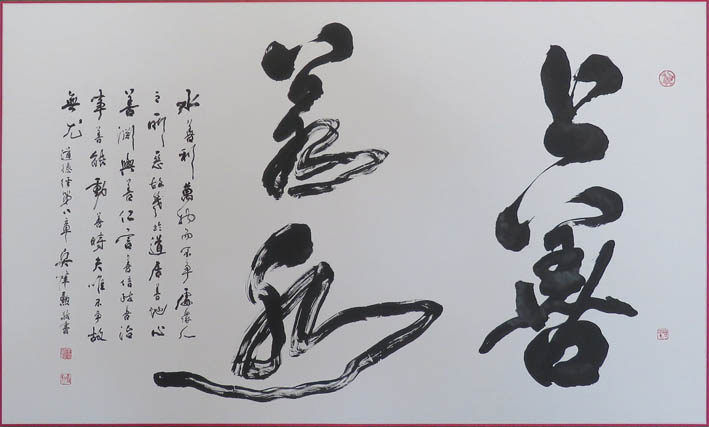 上善
若水
水善利萬物而不爭處眾人
之所惡故幾於道居善地心
善淵與善仁言善信政善治
事善能動善時夫唯不爭故
無尤 道德經第八章